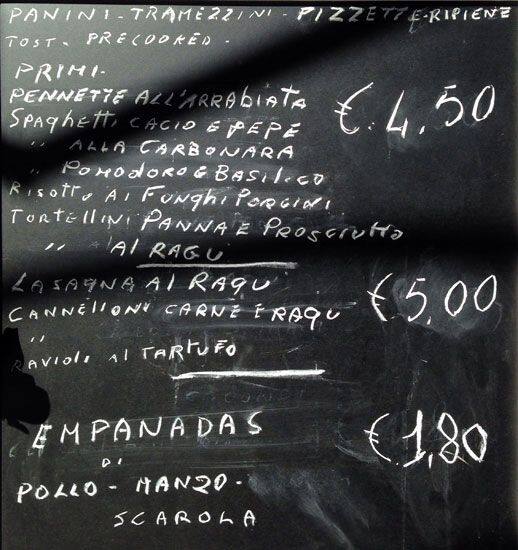 PANINI - TRAMEZZINI - PIZZETTE - RIPIENE
TOST - PRECOOKED -
PRIMI -
PENNETTE ALL'ARRABIATA
€ 4,50
SPAGHETTI CACIO E PEPE
" ALLA CARBONARA
" POMODORO E BASILICO
RISOTTO AI FUNGHI PORCINI
TORTELLINI PANNA E PROSCIUTTO
" AL RAGU
LASAGNA AL RAGU
€ 5,00
CANNELLONI CARNE E RAGU
"
RAVIOLI AL TARTUFO
EMPANADAS
€ 1,80
DI
POLLO - MANZO -
SCAROLA